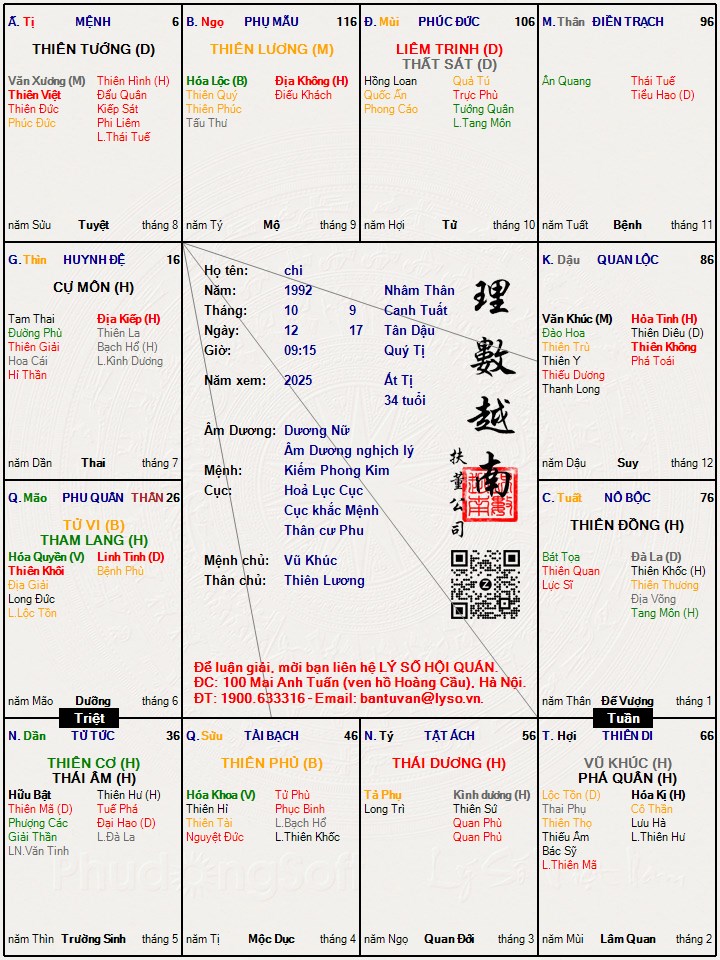 Ă. Tị MỆNH 6
THIÊN TƯỚNG (Đ)
Văn Xương (M) Thiên Hình (H)
Thiên Việt Đẩu Quân
Thiên Đức Kiếp Sát
Phúc Đức Phi Liêm
L.Thái Tuế
năm Sửu Tuyệt tháng 8
B. Ngọ PHỤ MẪU 116
THIÊN LƯƠNG (M)
Hóa Lộc (B) Địa Không (H)
Thiên Quý Điếu Khách
Thiên Phúc
Tấu Thư
năm Tý Mộ tháng 9
Đ. Mùi PHÚC ĐỨC 106
LIÊM TRINH (Đ)
THẤT SÁT (Đ)
Hồng Loan Quả Tú
Quốc Ấn Trực Phù
Phong Cáo Tướng Quân
L.Tang Môn
năm Hợi Tử tháng 10
M. Thân ĐIỀN TRẠCH 96
Ân Quang Thái Tuế
Tiểu Hao (Đ)
năm Tuất Bệnh tháng 11
G. Thìn HUYNH ĐỆ 16
CỰ MÔN (H)
Tam Thai Địa Kiếp (H)
Đường Phù Thiên La
Thiên Giải Bạch Hổ (H)
Hoa Cái L.Kình Dương
Hỉ Thần
năm Dần Thai tháng 7
Họ tên: chi
Năm: 1992 Nhâm Thân
Tháng: 10 9 Canh Tuất
Ngày: 12 17 Tân Dậu
Giờ: 09:15 Quý Tị
Năm xem: 2025 Ất Tị
34 tuổi
Âm Dương: Dương Nữ
Âm Dương nghịch lý
Mệnh: Kiếm Phong Kim
Cục: Hoả Lục Cục
Cục khắc Mệnh
Thân cư Phu
Mệnh chủ: Vũ Khúc
Thân chủ: Thiên Lương
理數越南
扶董公司
Để luận giải, mời bạn liên hệ LÝ SỐ HỘI QUÁN.
ĐC: 100 Mai Anh Tuấn (ven hồ Hoàng Cầu), Hà Nội.
ĐT: 1900.633316 - Email: bantuvan@lyso.vn.
K. Dậu QUAN LỘC 86
Văn Khúc (M) Hỏa Tinh (H)
Đào Hoa Thiên Diêu (Đ)
Thiên Trù Thiên Không
Thiên Y Phá Toái
Thiếu Dương
Thanh Long
năm Dậu Suy tháng 12
Q. Mão PHU QUÂN THÂN 26
TỬ VI (B)
THAM LANG (H)
Hóa Quyền (V) Linh Tinh (Đ)
Thiên Khôi Bệnh Phù
Địa Giải
Long Đức
L.Lộc Tồn
năm Mão Dưỡng tháng 6
C. Tuất NÔ BỘC 76
THIÊN ĐỒNG (H)
Bát Tọa Đà La (Đ)
Thiên Quan Thiên Khốc (H)
Lực Sĩ Thiên Thương
Địa Võng
Tang Môn (H)
năm Thân Đế Vượng tháng 1
Triệt
Tuần
N. Dần TỬ TỨC 36
THIÊN CƠ (H)
THÁI ÂM (H)
Hữu Bật Thiên Hư (H)
Thiên Mã (Đ) Tuế Phá
Phượng Các Đại Hao (Đ)
Giải Thần L.Đà La
LN.Văn Tinh
năm Thìn Trường Sinh tháng 5
Q. Sửu TÀI BẠCH 46
THIÊN PHỦ (B)
Hóa Khoa (V) Tử Phù
Thiên Hỉ Phục Binh
Thiên Tài L.Bạch Hổ
Nguyệt Đức L.Thiên Khốc
năm Tị Mộc Dục tháng 4
N. Tý TẬT ÁCH 56
THÁI DƯƠNG (H)
Tả Phụ Kình dương (H)
Long Trì Thiên Sứ
Quan Phủ
Quan Phù
năm Ngọ Quan Đới tháng 3
T. Hợi THIÊN DI 66
VŨ KHÚC (H)
PHÁ QUÂN (H)
Lộc Tồn (Đ) Hóa Kị (H)
Thai Phụ Cô Thần
Thiên Thọ Lưu Hà
Thiếu Âm L.Thiên Hư
Bác Sỹ
L.Thiên Mã
năm Mùi Lâm Quan tháng 2